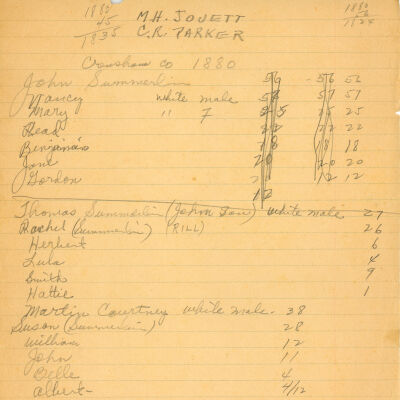 1880 M.H. JOUETT 1880
45 C.R. PARKER 56
1835 1824
co 1880
John Summerlin 56 56 56
Nancy white male 57 57
Mary " 7 25 25 25
Read 22 22 22
Benjamin 18 18 18
Jane 20 20 20
Gordon 12 12
12
Thomas Summerlin (John Son) white male 27
Rachel (Summerlin) (RILL) 26
Herbert 6
Lula 4
Smith 9
Hattie 1
Martin Courtney white male. 38
Susan (Summerlin) 28
William 12
John 11
Belle 4
Albert- 4/12